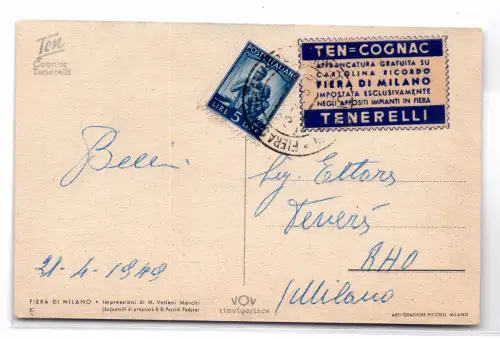 Ten
Cognac
Tenerelli
POSTE ITALIANE
LIRE 5
FIERA
TEN=COGNAC
AFFRANCATURA GRATUITA SU
CARTOLINA RICORDO
FIERA DI MILANO
IMPOSTATA ESCLUSIVAMENTE
NEGLI APPOSITI IMPIANTI IN FIERA
TENERELLI
Sig. Ettore
RHO
(Milano
21-4-1949
FIERA DI MILANO • Impressioni di M. Vellani Marchi
VOV
rinvigorisce
ARTI GRAFICHE PICCOLI MILANO